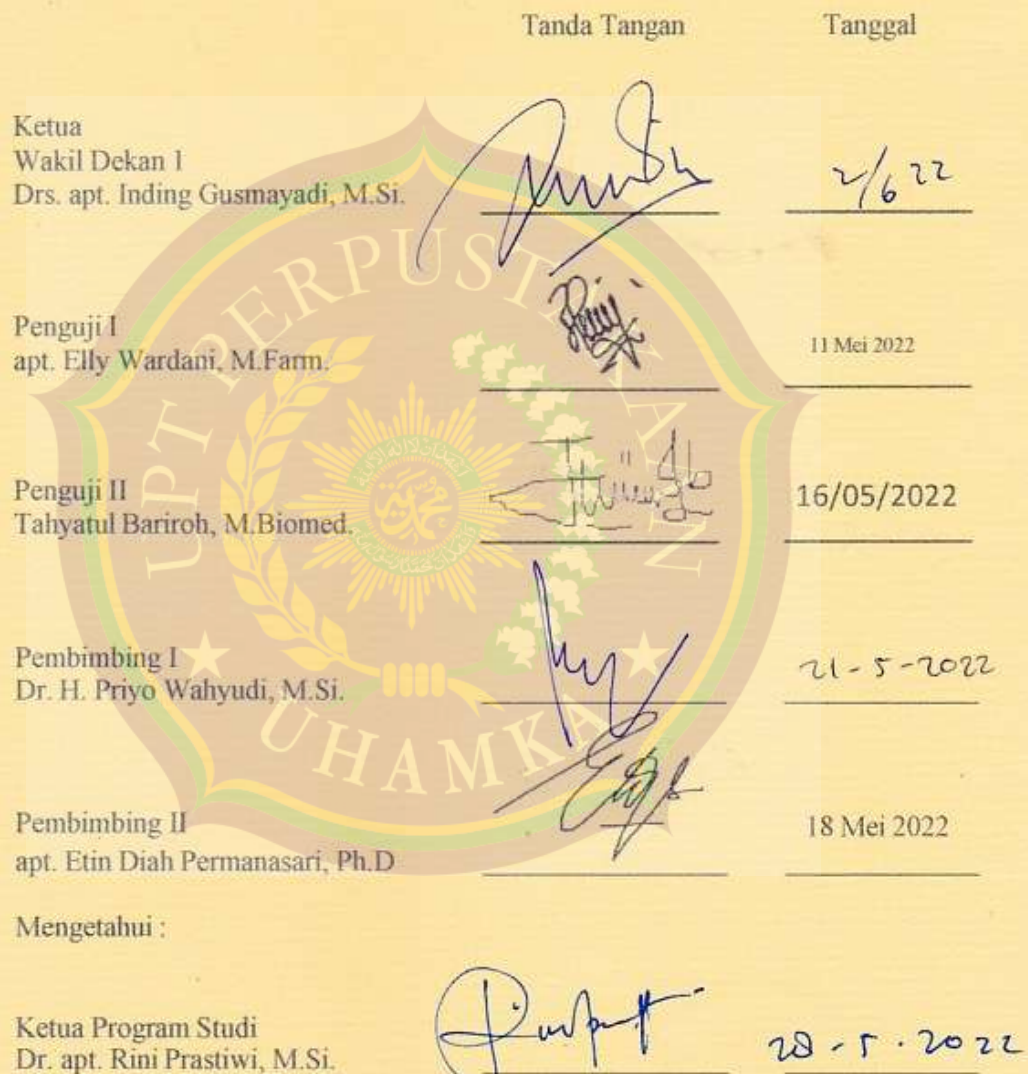 Tanda Tangan Tanggal
Ketua
Wakil Dekan 1
Drs. apt. Inding Gusmayadi, M.Si.
2/6 22
Penguji I
apt. Elly Wardani, M.Farm.
11 Mei 2022
Penguji II
Tahyatul Bariroh, M.Biomed.
16/05/2022
Pembimbing I
Dr. H. Priyo Wahyudi, M.Si.
21-5-2022
Pembimbing II
apt. Etin Diah Permanasari, Ph.D
18 Mei 2022
Mengetahui :
Ketua Program Studi
Dr. apt. Rini Prastiwi, M.Si.
28-5-2022
UPT PERPUSTAKAAN
UHAMKA